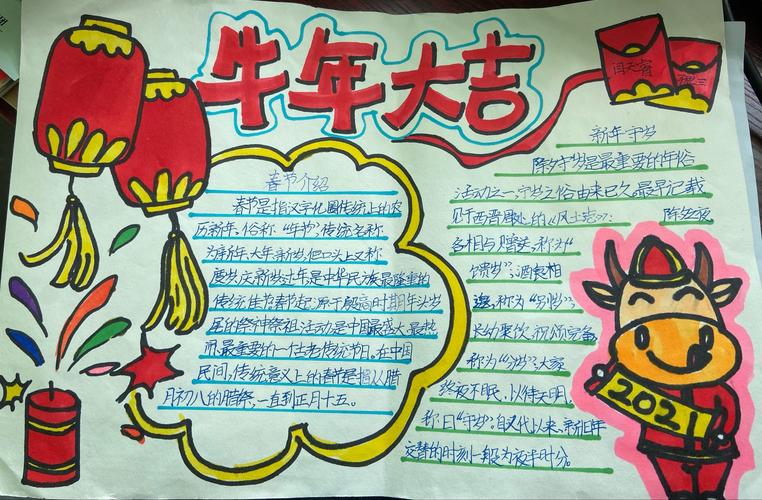 牛年大吉
春节介绍
春节是指汉字化圈传统上的农
历新年,俗称,“年节”,传统名称
为新年、大年、新岁,但口头上又称
度岁、庆新岁、过年,是中华民族最隆重的
传统佳节春节起源于殷商时期年头岁
尾的祭神祭祖活动是中国最盛大、最热
闹、最重要的一个古老传统节日。在中国
民间,传统意义上的春节是指从腊
月初八的腊祭,一直到正月十五。
新年守岁
除夕守岁是最重要的年俗
活动之一,守岁之俗由来已久。最早记载
见于西晋周处的《风土志》:
除夕之夜
各相与赠送,称为“
馈岁”;酒食相
邀,称为“别岁”;
长幼聚饮,祝颂完备,
称为“分岁”;大家
终夜不眠,以待天明,
称曰“守岁”,自汉代以来,新旧年
交替的时刻一般为夜半时分。
2021